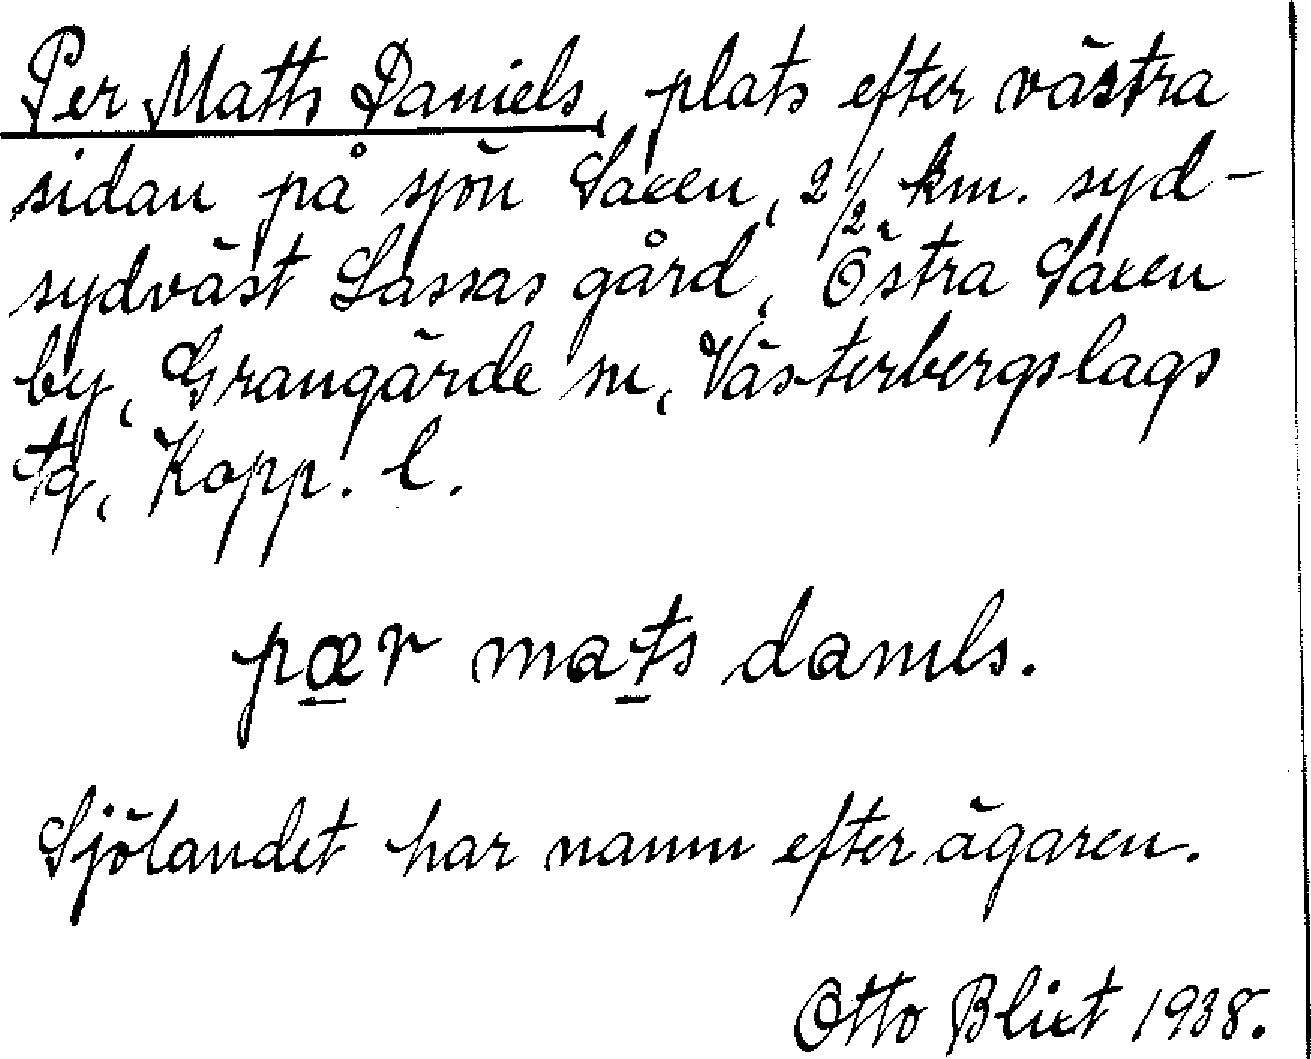 Per Matts Daniels, plats efter västra
sidan på sjön Saxen, 2 1/2 km. syd-
sydväst Lassas gård, Östra Saxen
by, Grangärde sn, Västerbergslags
tg, Kopp. l.
pær mats danıls.
Sjölandet har namn efter ägaren.
Otto Blixt 1938.